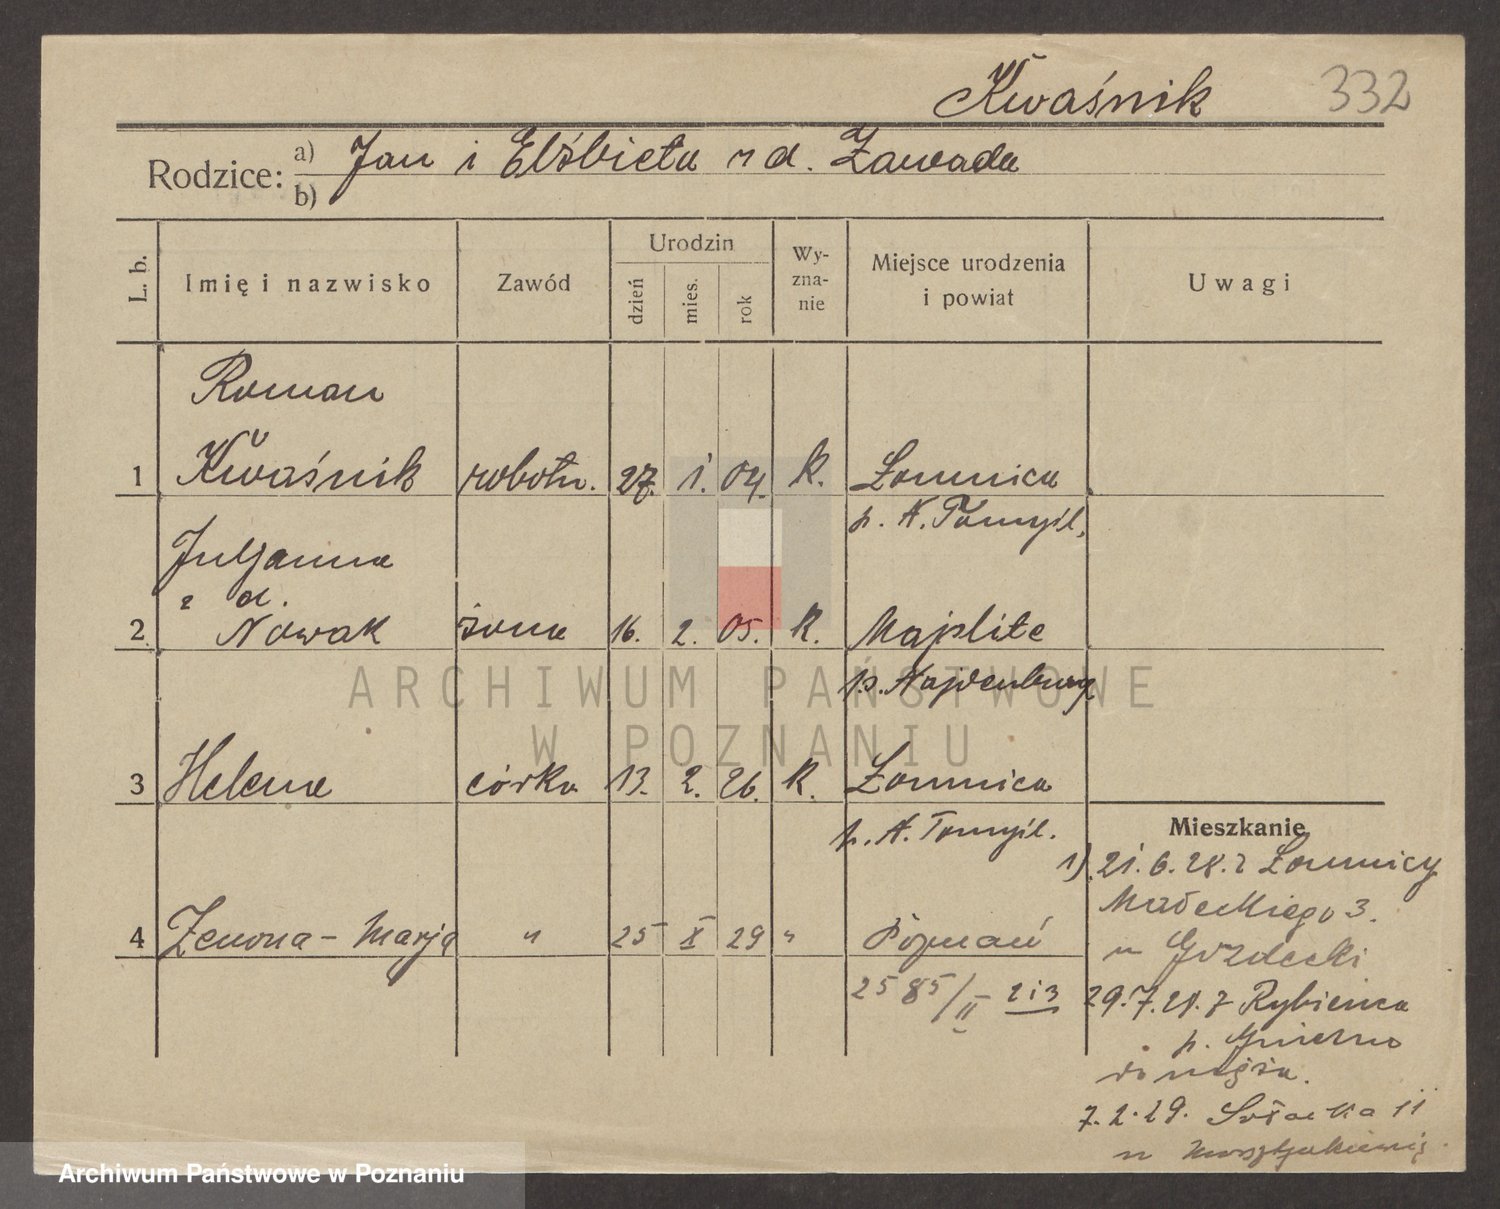 Kwaśnik 332
Rodzice: a) Jan i Elżbieta zd. Zawada
b)
L. b. Imię i nazwisko Zawód Urodzin dzień mies. rok Wy-zna-nie Miejsce urodzenia i powiat Uwagi
Roman
1 Kwaśnik robotn. 27. 1. 04. k. Łomnica
p. N. Tomyśl.
Juljanna
z d.
2 Nowak żona 16. 2. 05. k. Majplite
p. Najdenburg
3 Helena córka 13. 2. 26. k. Łomnica
p. N. Tomyśl.
4 Zenona - Marja " 25 X 29 " Poznań
2585/II 2 i 3
Mieszkanie
1) 21.6.28. z Łomnicy
Małeckiego 3.
u
29.7.28. z
p. Gniezno
do męża.
7.2.29. Sołacka 11
u
ARCHIWUM PAŃSTWOWE
W POZNANIU
Archiwum Państwowe w Poznaniu